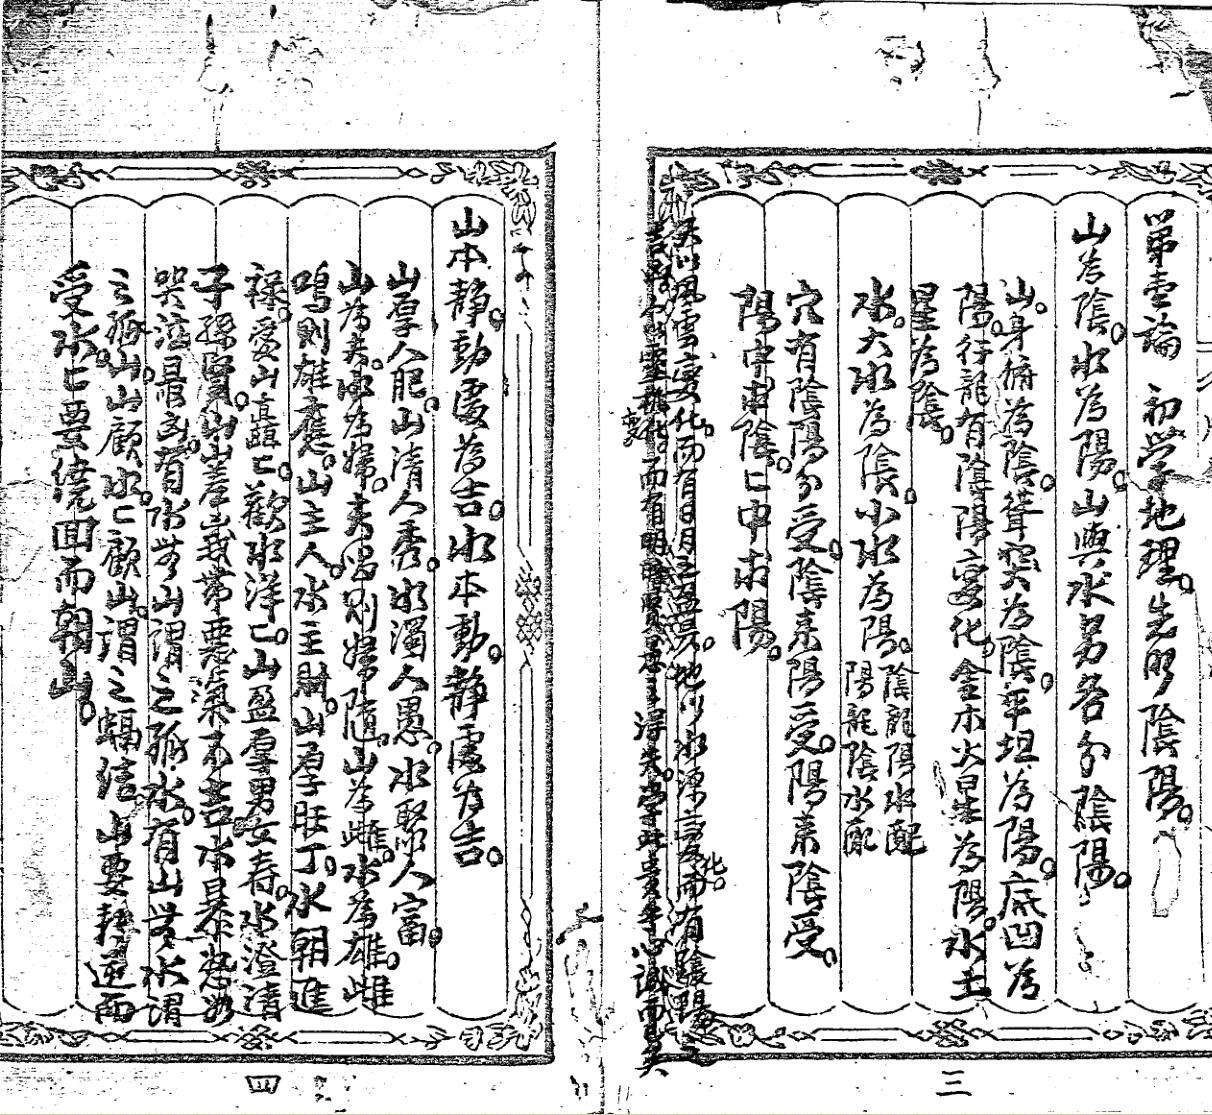 第壹論 初学地理。先明陰陽。
山為陰。水為陽。山與水男各分陰陽。
山。身俯為陰。聳突為陰。平坦為陽。底凹為
陽。行龍有陰陽变化。金木火星為陽。水土
星為陰。
水。大水為陰。小水為陽。陰龍陽水配
陽龍陰水配
穴有陰陽分受。陰来陽受。陽来陰受。
陽中求陰。陰中求陽。
天以風雲变化。而有日月之温暖。地以水源变化。而有陰陽之
而有明
得失。
山本静。動處為吉。水本動。静處為吉。
山厚人肥。山清人秀。水濁人愚。水聚人富。
山為夫。水為婦。夫唱則婦随。山為雌。水為雄。雌
鳴則雄應。山主人。水主財。山厚旺丁。水朝進
禄。愛山直直匕。歡水洋匕。山盈厚男女寿。水澄清
子孫賢。山山差峩带悪氣不吉。水暴怒如
哭泣最凶。有水無山謂之孤水。有山無水謂
之孤山。山顧水。匕顧山。謂之 山要 逆而
受水。匕要繞回而朝山。
四
三